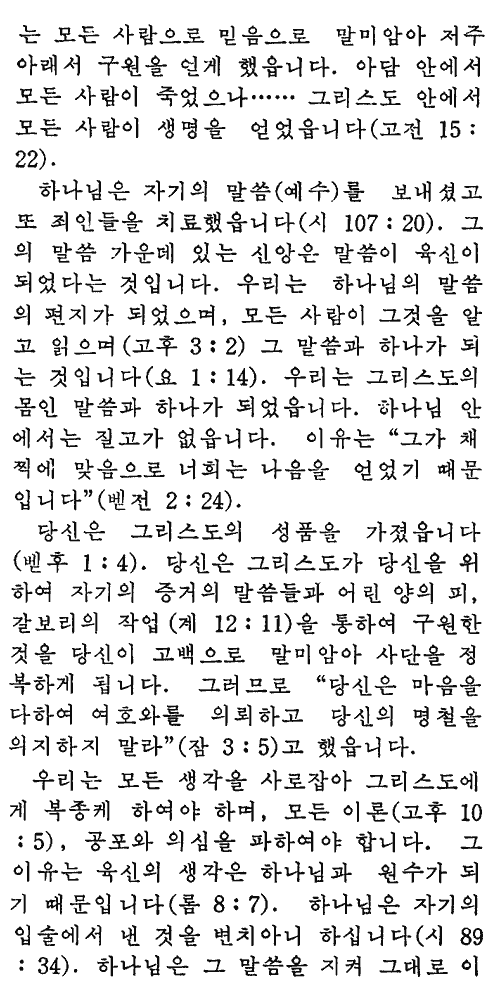 는 모든 사람으로 믿음으로 말미암아 저주
아래서 구원을 얻게 했읍니다. 아담 안에서
모든 사람이 죽었으나…… 그리스도 안에서
모든 사람이 생명을 얻었읍니다(고전 15 :
22).
하나님은 자기의 말씀(예수)를 보내셨고
또 죄인들을 치료했읍니다(시 107 : 20). 그
의 말씀 가운데 있는 신앙은 말씀이 육신이
되었다는 것입니다. 우리는 하나님의 말씀
의 편지가 되었으며, 모든 사람이 그것을 알
고 읽으며(고후 3 : 2) 그 말씀과 하나가 되
는 것입니다(요 1 : 14). 우리는 그리스도의
몸인 말씀과 하나가 되었읍니다. 하나님 안
에서는 질고가 없읍니다. 이유는 “그가 채
찍에 맞음으로 너희는 나음을 얻었기 때문
입니다”(벧전 2 : 24).
당신은 그리스도의 성품을 가졌읍니다
(벧후 1 : 4). 당신은 그리스도가 당신을 위
하여 자기의 증거의 말씀들과 어린 양의 피,
갈보리의 작업(계 12 : 11)을 통하여 구원한
것을 당신이 고백으로 말미암아 사단을 정
복하게 됩니다. 그러므로 “당신은 마음을
다하여 여호와를 의뢰하고 당신의 명철을
의지하지 말라”(잠 3 : 5)고 했읍니다.
우리는 모든 생각을 사로잡아 그리스도에
게 복종케 하여야 하며, 모든 이론(고후 10
: 5), 공포와 의심을 파하여야 합니다. 그
이유는 육신의 생각은 하나님과 원수가 되
기 때문입니다(롬 8 : 7). 하나님은 자기의
입술에서 낸 것을 변치아니 하십니다(시 89
: 34). 하나님은 그 말씀을 지켜 그대로 이